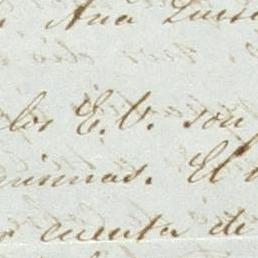 Ana Luisa
los E. V. son
guinnas. El
cuenta de